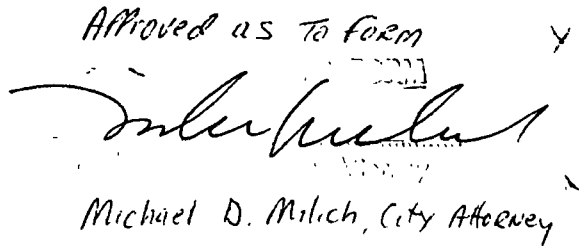 Approved as To Form
Michael D. Milich, City Attorney